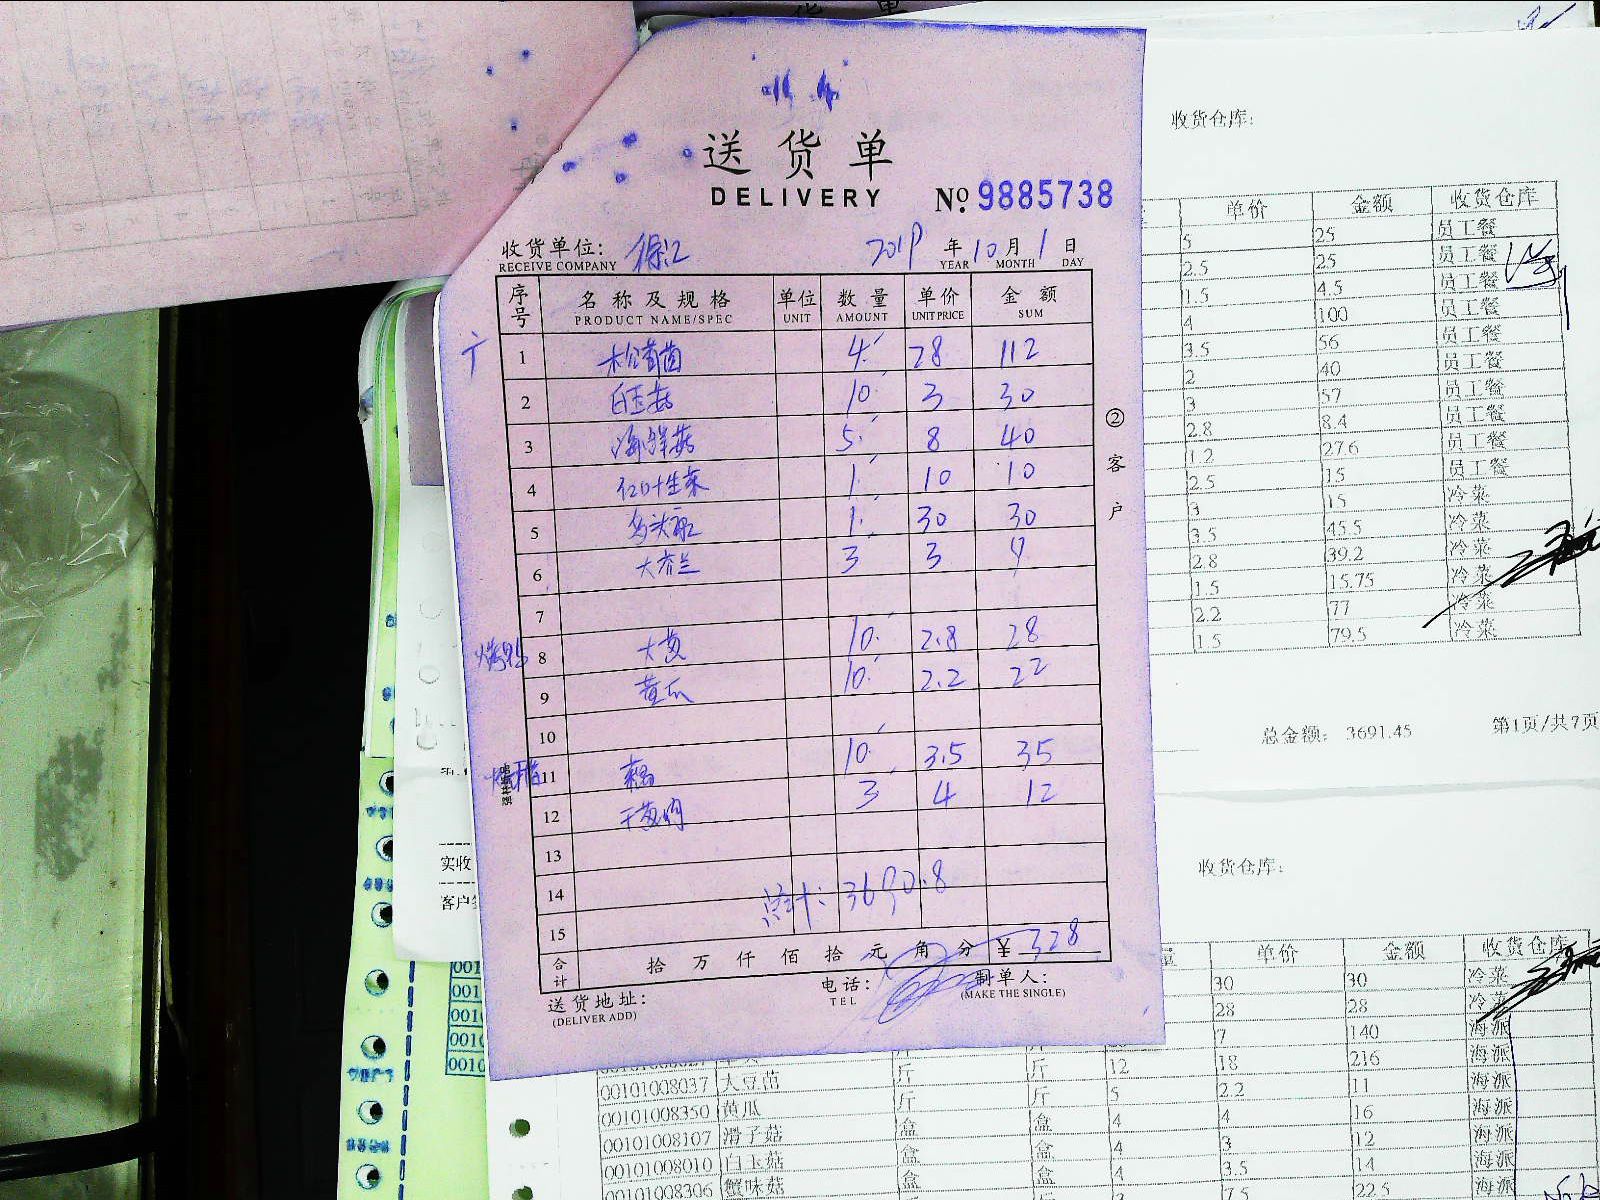 送货单
DELIVERY № 9885738
收货单位: 徐汇 2019 年 10 月 1 日
RECEIVE COMPANY YEAR MONTH DAY
序号 名称及规格 单位 数量 单价 金额
PRODUCT NAME/SPEC UNIT AMOUNT UNIT PRICE SUM
1 松茸菌 4 28 112
2 白玉菇 10 3 30
3 海鲜菇 5 8 40
4 1 10 10
5 1 30 30
6 大芥兰 3 3 9
7
8 大葱 10 2.8 28
9 黄瓜 10 2.2 22
10
11 藕 10 3.5 35
12 3 4 12
13
14 总计: 3690.8
15
合计 拾 万 仟 佰 拾 元 角 分 ¥ 328
送货地址: 电话: 制单人:
(DELIVER ADD) TEL (MAKE THE SINGLE)
②客户
收货仓库:
单价 金额 收货仓库
5 25 员工餐
2.5 25 员工餐
1.5 4.5 员工餐
4 100 员工餐
3.5 56 员工餐
2 40 员工餐
3 57 员工餐
2.8 8.4 员工餐
1.2 27.6 员工餐
2.5 15 员工餐
3 15 冷菜
3.5 45.5 冷菜
2.8 39.2 冷菜
1.5 15.75 冷菜
2.2 77 冷菜
1.5 79.5 冷菜
总金额: 3691.45 第1页/共7页
收货仓库:
单价 金额 收货仓库
30 30 冷菜
28 28 冷菜
7 140 海派
12 18 216 海派
00101008037 大豆苗 斤 斤 5 2.2 11 海派
00101008350 黄瓜 斤 斤 4 4 16 海派
00101008107 滑子菇 盒 盒 4 3 12 海派
00101008010 白玉菇 盒 盒 4 3.5 14 海派
00101008306 蟹味菇 盒 盒 3 7.5 22.5 海派
实收